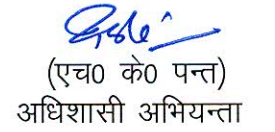 (एच0 के0 पन्त)
अधिशासी अभियन्ता